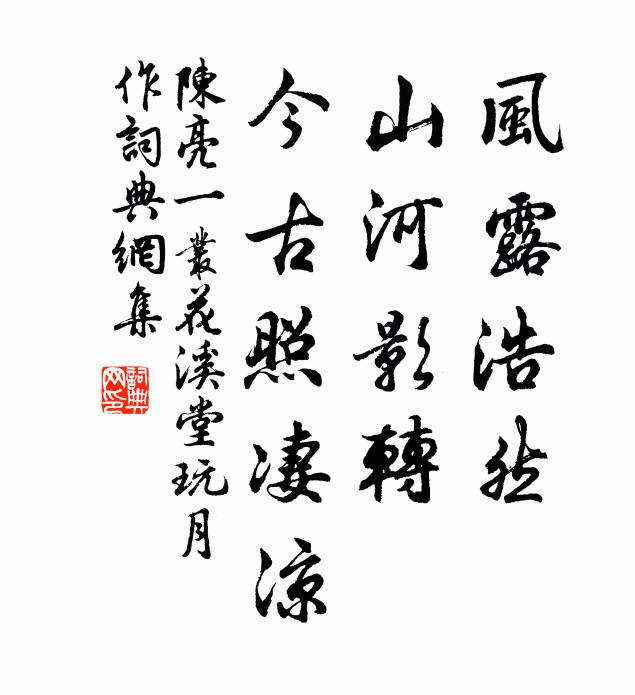 風露浩然
山河影轉
今古照淒涼
陳亮一叢花溪堂玩月
作詞典網集
詞典
网印